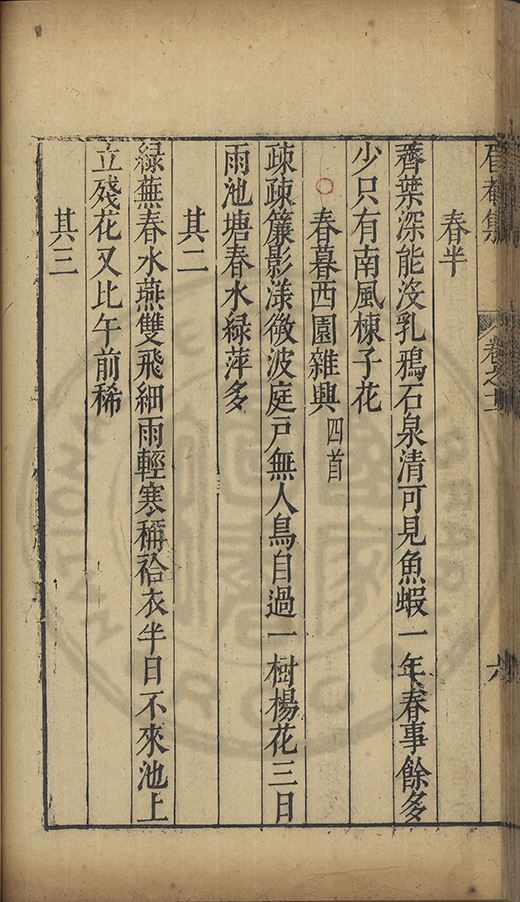 眉菴集 卷之十一 六
春半
薺葉深能沒乳鴉石泉清可見魚蝦一年春事餘多
少只有南風楝子花
春暮西園雜興四首
疎疎簾影漾微波庭戶無人鳥自過一樹楊花三日
雨池塘春水綠萍多
其二
綠蕪春水燕雙飛細雨輕寒稱袷衣半日不來池上
立殘花又比午前稀
其三